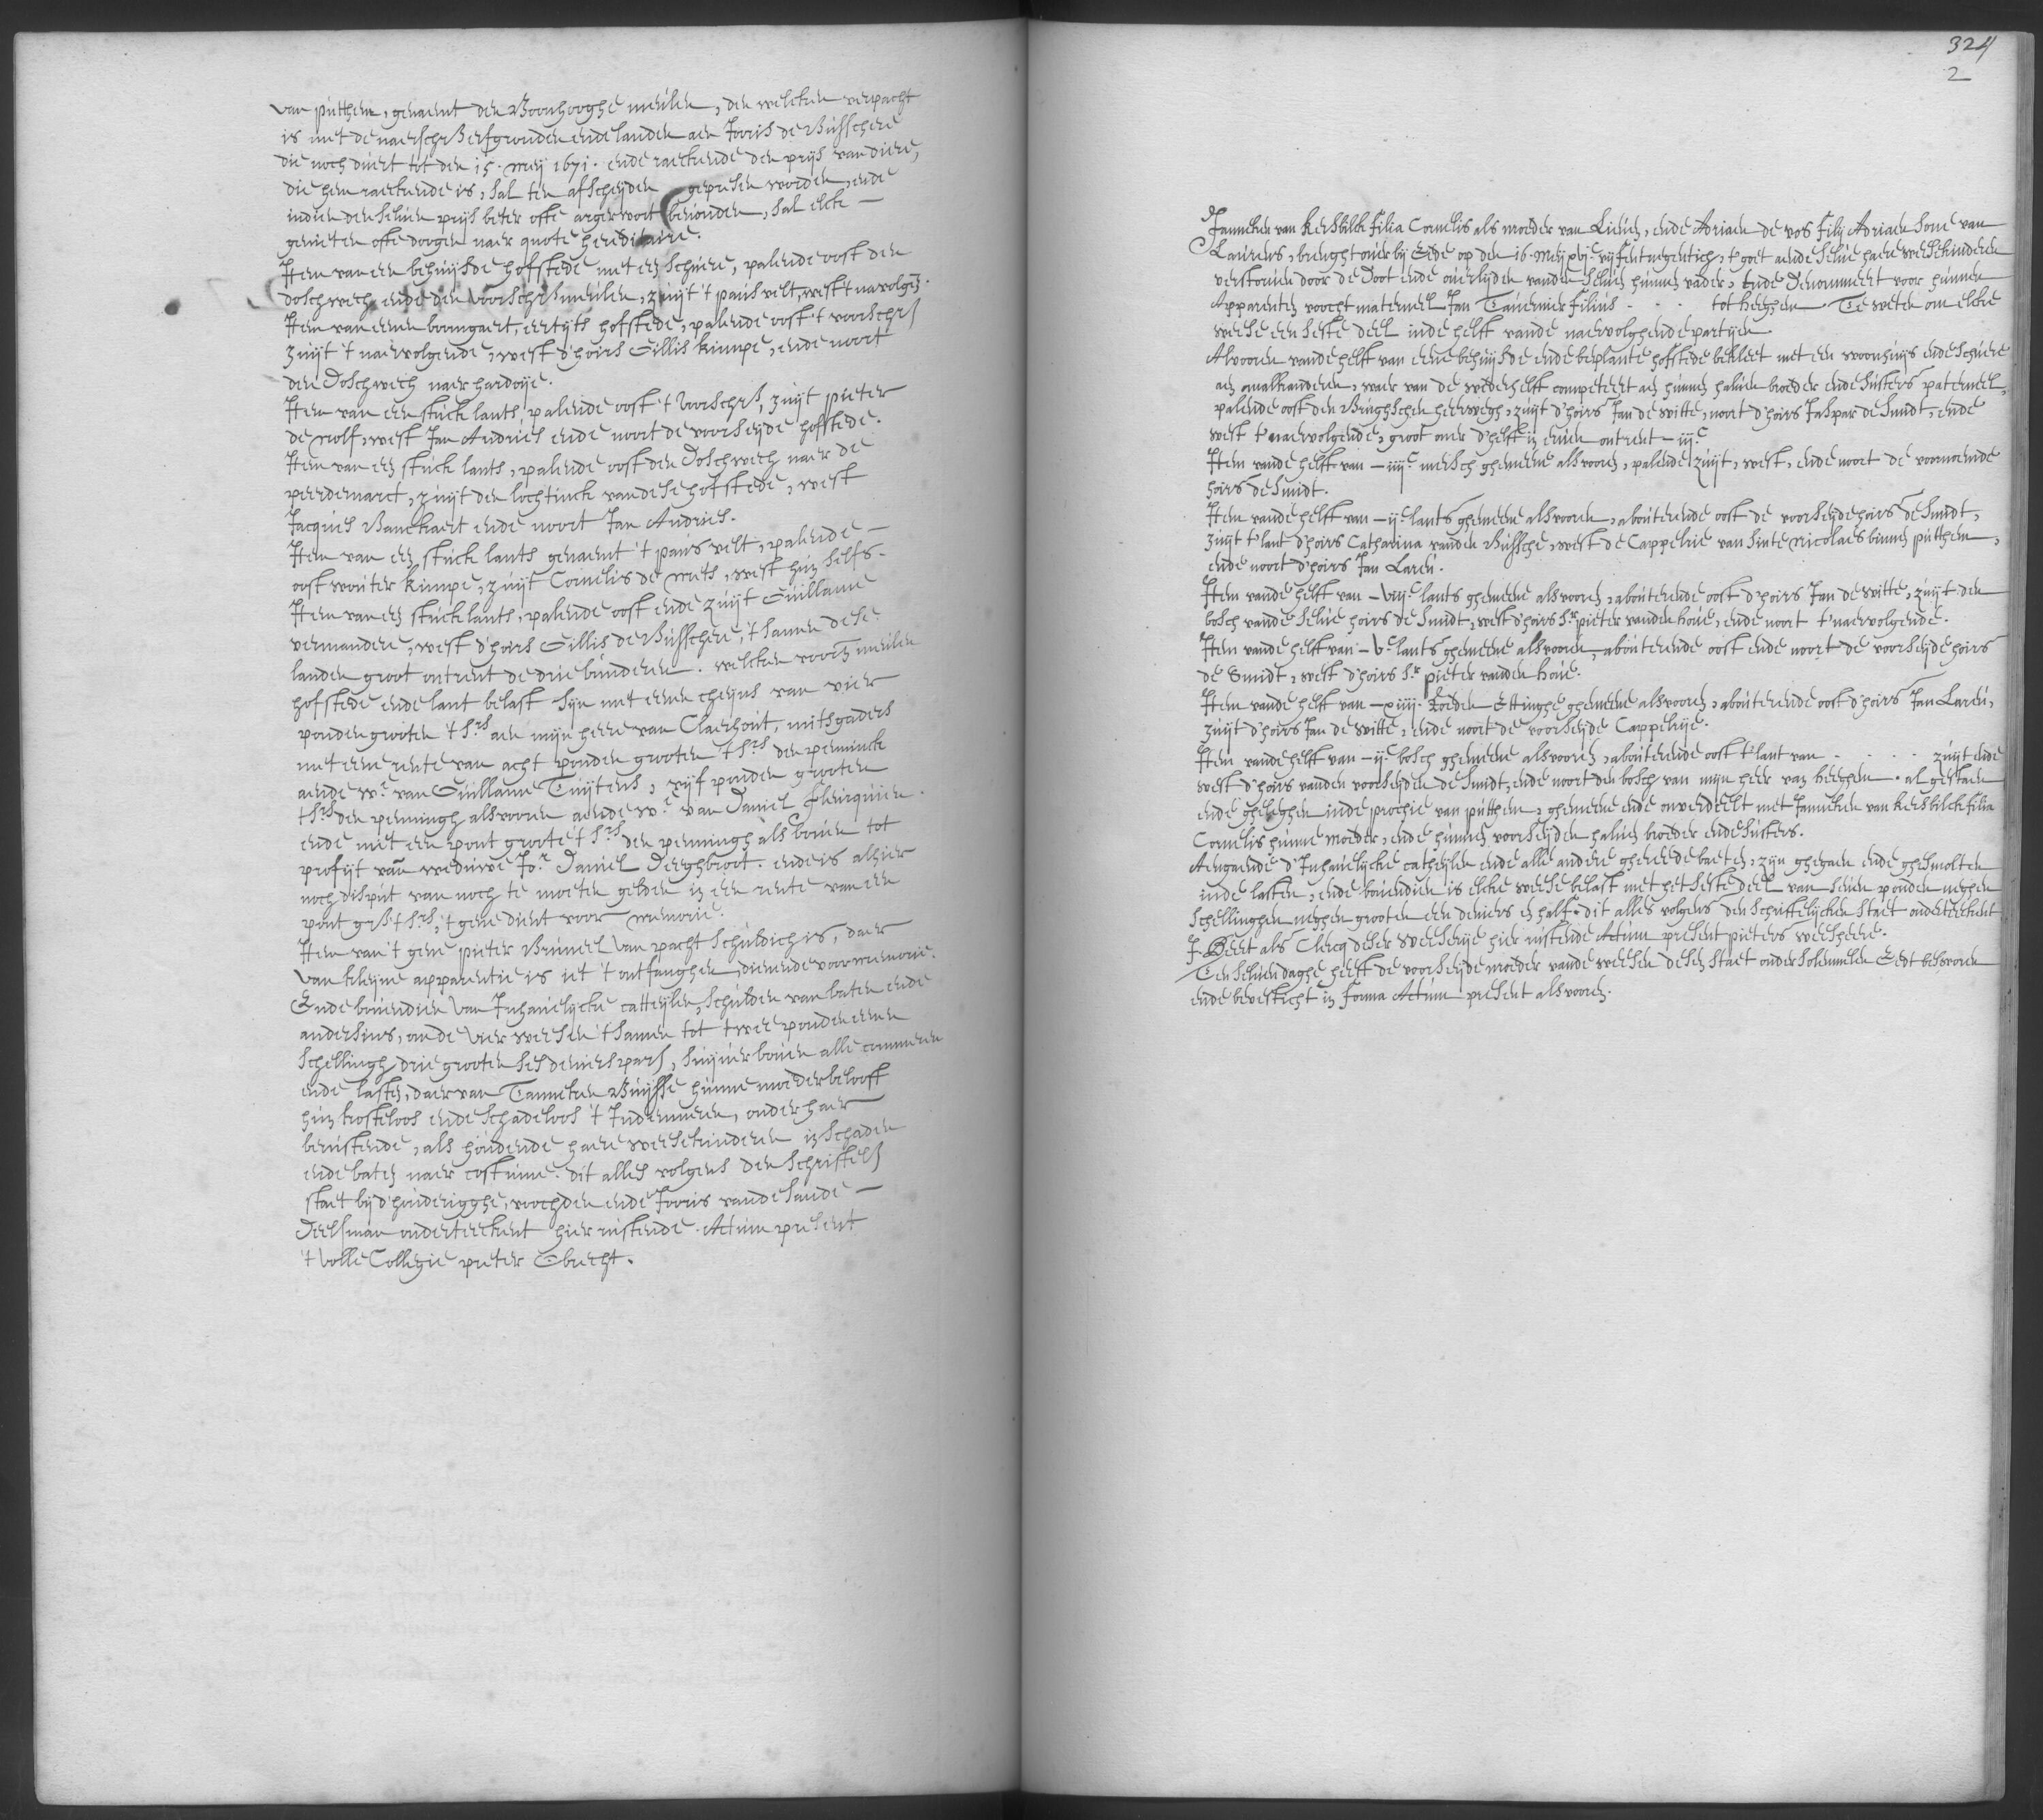 van putthem, genaemt den Boonhooghe meulen, den welcken verpacht
is met de naerschr. erfgronden ende landen aen Jooris de Busschere
die noch duert tot den 15. mey 1671. ende raeckende den prys van diere,
die hem raeckende is, sal ten afscheyden gepresen worden, ende
indien den selven prys beter ofte arger wort bevonden, sal elck
genieten ofte doogen naer quote hereditaire.
Item van een behuysde hofstede met een schuere, palende oost den
doschwech ende den voorschr. meulen, zuyt 't paus velt, west 't navolgen.
Item van eenen boomgaert, eertyts hofstede, palende oost 't voorschr.
zuyt 't naervolgende, west d'hoirs Gillis kimpe, ende noort
den Doschwech naer hardoye.
Item van een stuck lants palende oost 't voorschr. zuyt pieter
de wolf, west Jan Andries ende noort de voorseyde hofstede.
Item van een stuck lants, palende oost den Doschwech naer de
peerdemarct, zuyt den lochtinck van dese hofstede, west
Jacques Banckaert ende noort Jan Andries.
Item van een stuck lants genaemt 't paus velt, palende
oost wouter kimpe, zuyt Cornelis de meits, west hun selfs.
Item van een stuck lants, palende oost ende zuyt Guillame
vermandere, west d'hoirs Gillis de Busschere, 't samen dese
landen groot ontrent de drie bunderen. welcken voorn. meulen
hofstede ende lant belast syn met eenen cheyns van vier
ponden grooten 'tsrs aen myn heere van Claerhout, mitsgaders
met eene rente van acht ponden grooten 'tsrs den pennick
aende we. van Guillame Tuytens, vyf ponden grooten
tsrs den penningh alsvooren aende we. van Daniel fleurquien.
ende met een pont groote tsrs den penningh als boven tot
profyt van weduwe Jor. Daniel Derghbroot. ende is alhier
noch disput van noch te moeten gelden in een rente van een
pont gr. tsrs, 't gene dient voor memorie.
Item van 't gene pieter Bruneel van pacht schuldich is, daer
van kleyne apparentie is iet 't ontfanghen, dienende voor memorie.
Ende bovendien van Inhavelycke catteylen, schulden van baten ende
andersins, ande vier weesen 't samen tot twee ponden eenen
schellingh drie grooten ses deniers pars, suyver boven alle commeren
ende lasten, daer van Tanneken Buysse hunne moeder belooft
hun kosteloos ende schadeloos 't Indemneren, onder haer
berustende, als houdende haere weesekinderen in schaden
ende baten naer costume. dit alles volgens den schriftel.
staet by d'houderigghe, voochden ende Jooris vande Sande
deelsman onderteeckent hier rustende. Actum present
't volle Collegie pieter Obrecht.
324
2
Janneken van Kersbilck filia Cornelis als moeder van Lieven, ende Adriaen de vos filij Adriaen sone van
Laurens, brenght over by Eede op den 16. Mey xvjc. vyfentnegentich, t'goet aende selve haere weesekinderen
verstorven door de doot ende overlyden vanden selven hunnen vader, ende denommeert voor hunnen
Apparenten voocht materneel Jan Tavernier filius . . . tot heeghem. Te weten om elcke
weese een seste deel inde helft vande naervolghende partyen
Alvooren vande helft van eene behuysde ende beplante hofstede bekleet met een woonhuys ende schuere
aen malkanderen, waer van de wederhelft competeert aen hunnen halven broeder ende susters paterneel,
palende oost den Brugghschen heerwegh, zuyt d'hoirs Jan de witte, noort d'hoirs Jaspar de Smidt, ende
west t'naervolgende, groot over d'helft in erven ontrent - iijc
Item vande helft van - iiijc mersch ghemeene alsvooren, palende zuyt, west, ende noort de voornoemde
hoirs de Smidt.
Item vande helft van - ijc lants ghemeene alsvooren, aboutterende oost de voorseyde hoirs de Smidt,
zuyt t'lant d'hoirs Catharina vanden Bussche, west de Cappelrie van sinte Nicolaes binnen putthem,
ende noort d'hoirs Jan Lareu.
Item vande helft van - viijc lants ghemeene alsvooren, aboutterende oost d'hoirs Jan de witte, zuyt den
bosch vande selve hoirs de Smidt, west d'hoirs Sr. pieter vanden houe, ende noort t'naervolgende.
Item vande helft van - vc lants ghemeene alsvooren, aboutterende oost ende noort de voorseyde hoirs
de Smidt, west d'hoirs Sr. pieter vanden houe.
Item vande helft van - xiiij. Roeden Ettinghe ghemeene alsvooren, aboutterende oost d'hoirs Jan Lareu,
zuyt d'hoirs Jan de witte, ende noort de voorseyde Cappelrye.
Item vande helft van - ijc bosch ghemeene alsvooren, aboutterende oost t'lant van . . . . zuyt ende
west d'hoirs vanden voorseyden de Smidt, ende noort den bosch van myn heer van heeghem. al gestaen
ende gheleghen inde prochie van putthem, ghemeene ende onverdeelt met Janneken van Kersbilck filia
Cornelis hunne moeder, ende hunnen voorseyden halven broeder ende susters.
Aengaende d'Inhavelycke catheylen ende alle andere ghereede baeten, zyn ghegaen ende ghesmolten
inde lasten, ende bovendien is elcke weese belast met het seste deel van seven ponden neghen
schellinghen neghen grooten een deniers en half. dit alles volgens den schriftelycken staet onderteeckent
J. Beert als Clercq deser weeserye hier rustende Actum present pieters weesheere.
Ten selven daghe heeft de voorseyde moeder vande weesen desen staet onder solemnelen Eedt besworen
ende bevesticht in forma Actum present alsvooren.